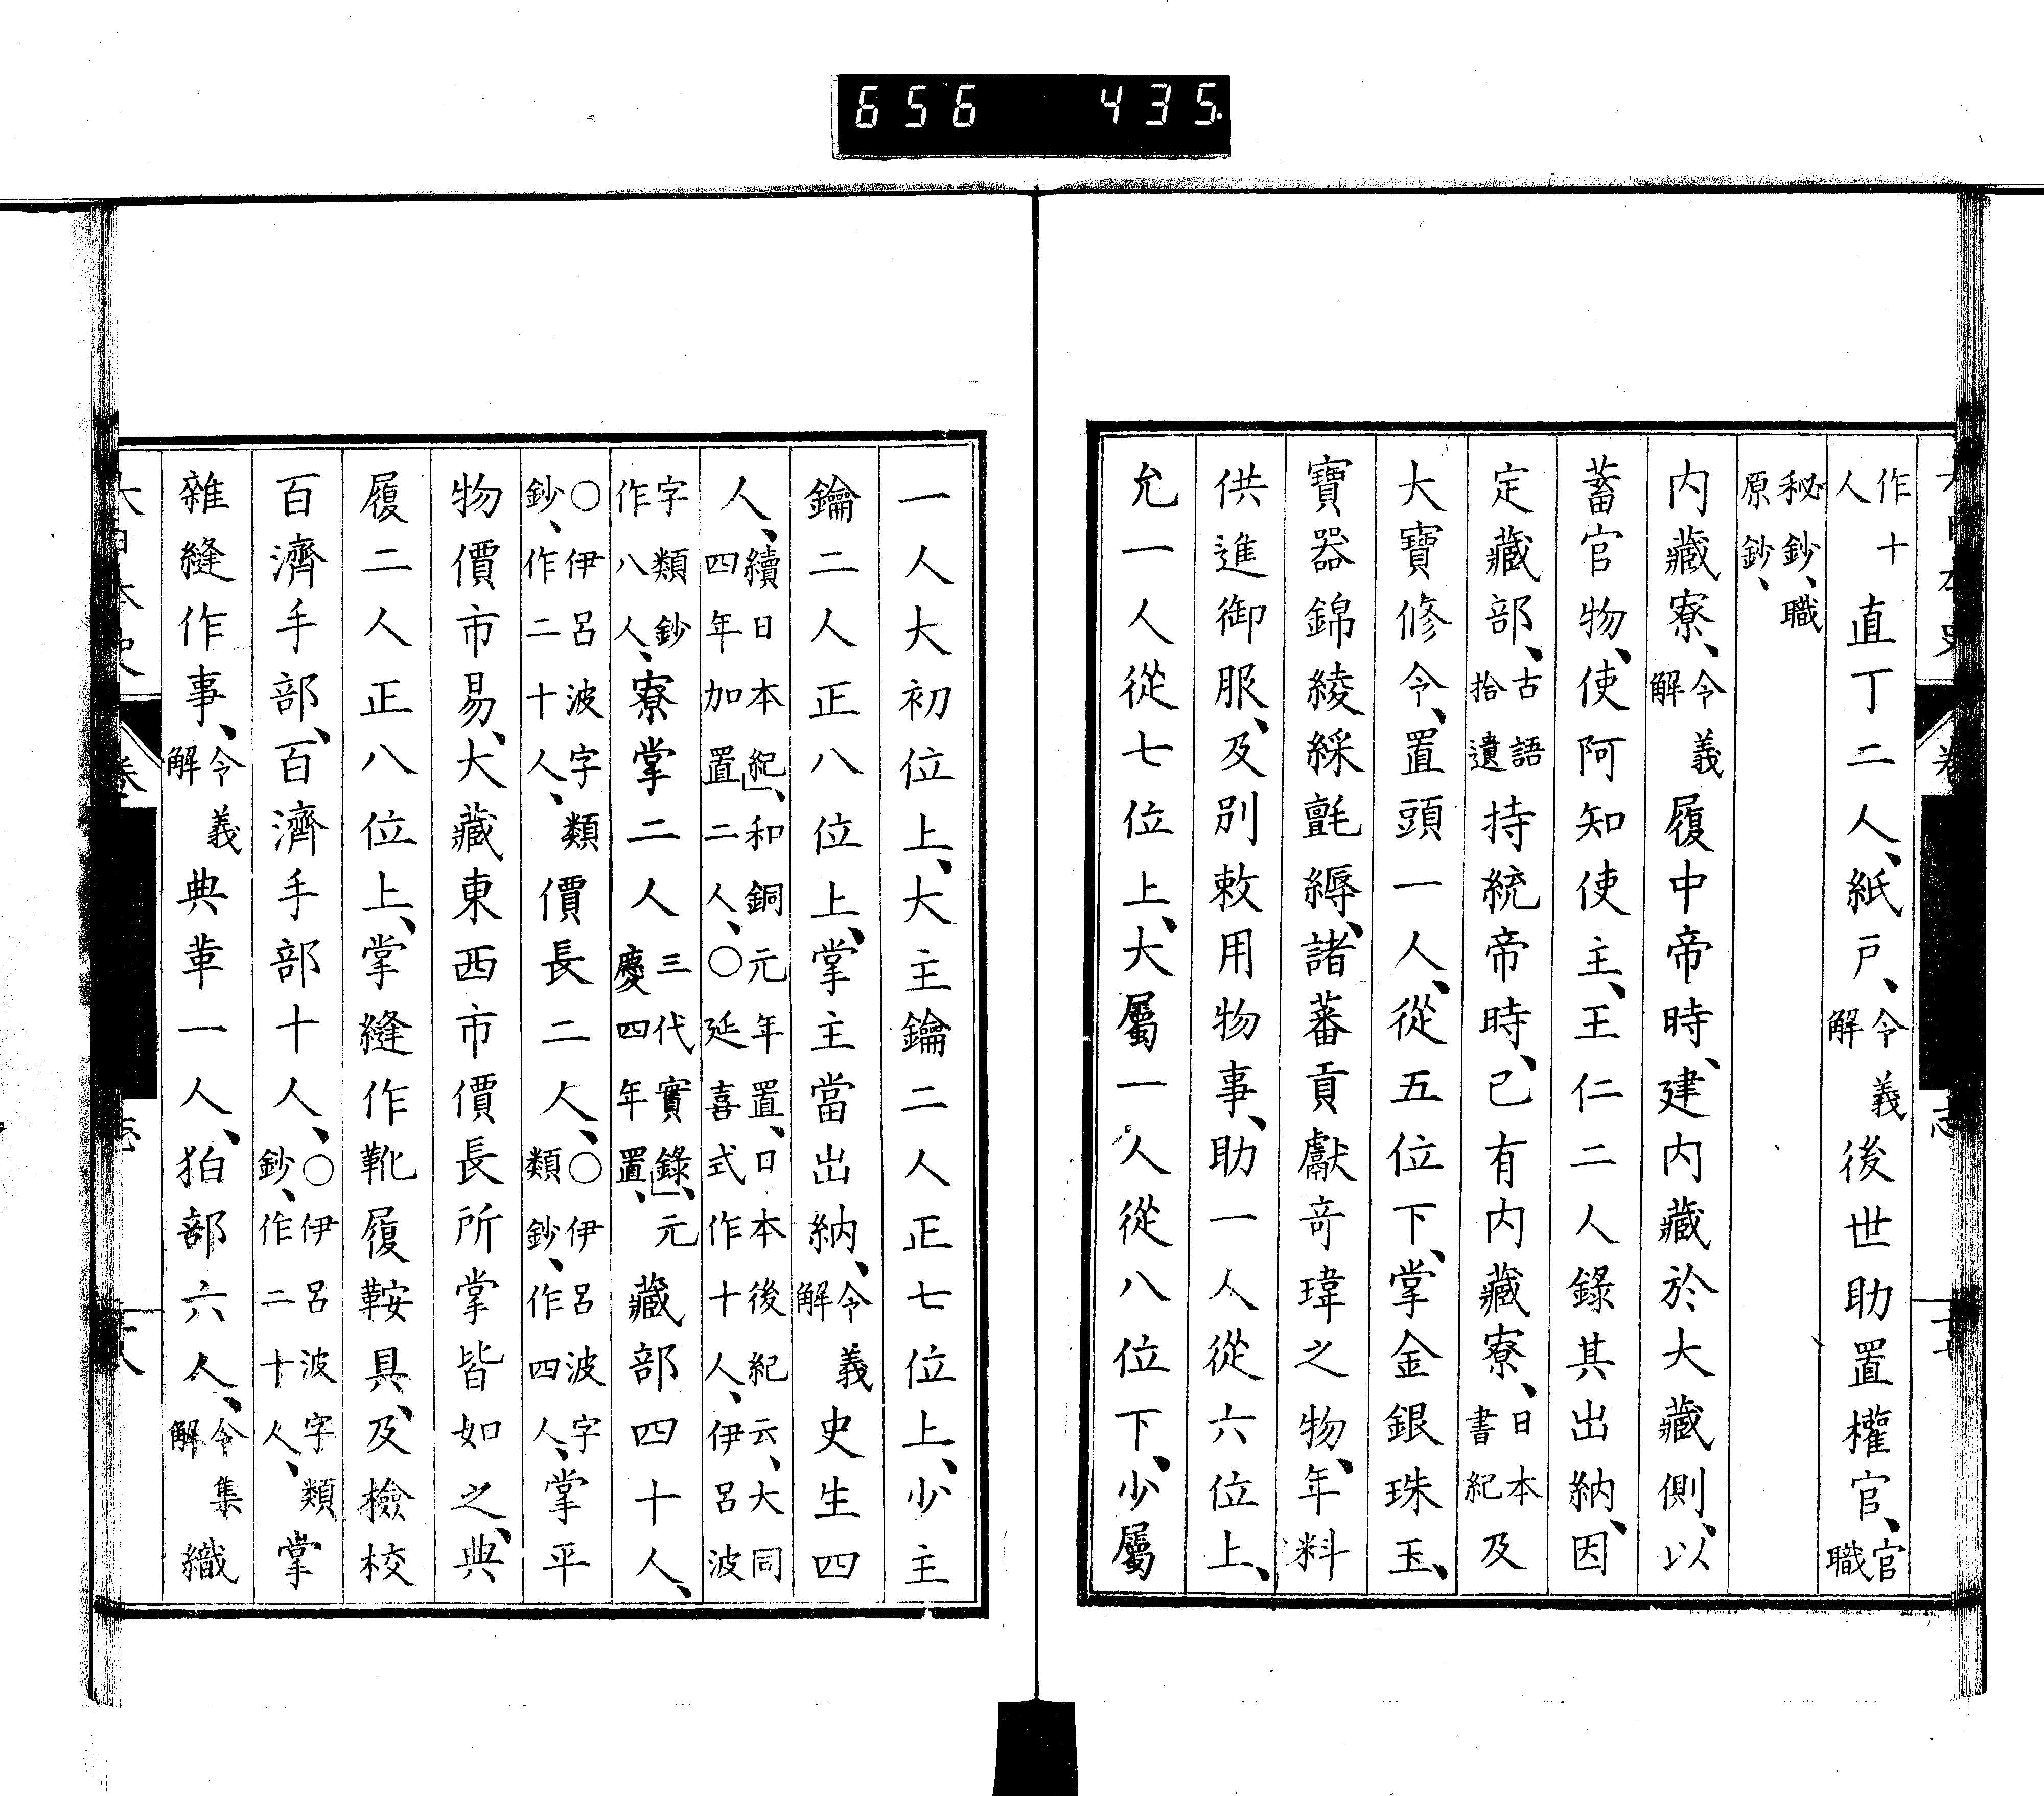 656 435
作十人直丁二人、紙戸、令義解後世助置權官、官職
秘鈔、職原鈔、
内藏寮、令義解履中帝時、建内藏於大藏側、以
蓄官物、使阿知使主、王仁二人錄其出納、因
定藏部、古語拾遺持統帝時、已有内藏寮、日本書紀及
大寶修令、置頭一人、從五位下、掌金銀珠玉、
寶器錦綾綵氈縟、諸蕃貢獻奇瑋之物、年料
供進御服、及別敕用物事、助一人從六位上、
允一人從七位上、大屬一人從八位下、少屬
一人大初位上、大主鑰二人正七位上、少主
鑰二人正八位上、掌主當出納、令義解史生四
人、續日本紀、和銅元年置、日本後紀云、大同四年加置二人、○延喜式作十人、伊呂波
字類鈔作八人、寮掌二人三代實錄、元慶四年置、藏部四十人、
○伊呂波字類鈔、作二十人、價長二人、○伊呂波字類鈔、作四人、掌平
物價市易、大藏東西市價長所掌皆如之、典
履二人正八位上、掌縫作靴履鞍具、及檢校
百濟手部、百濟手部十人、○伊呂波字類鈔、作二十人、掌
雜縫作事、令義解典革一人、狛部六人、令集解織